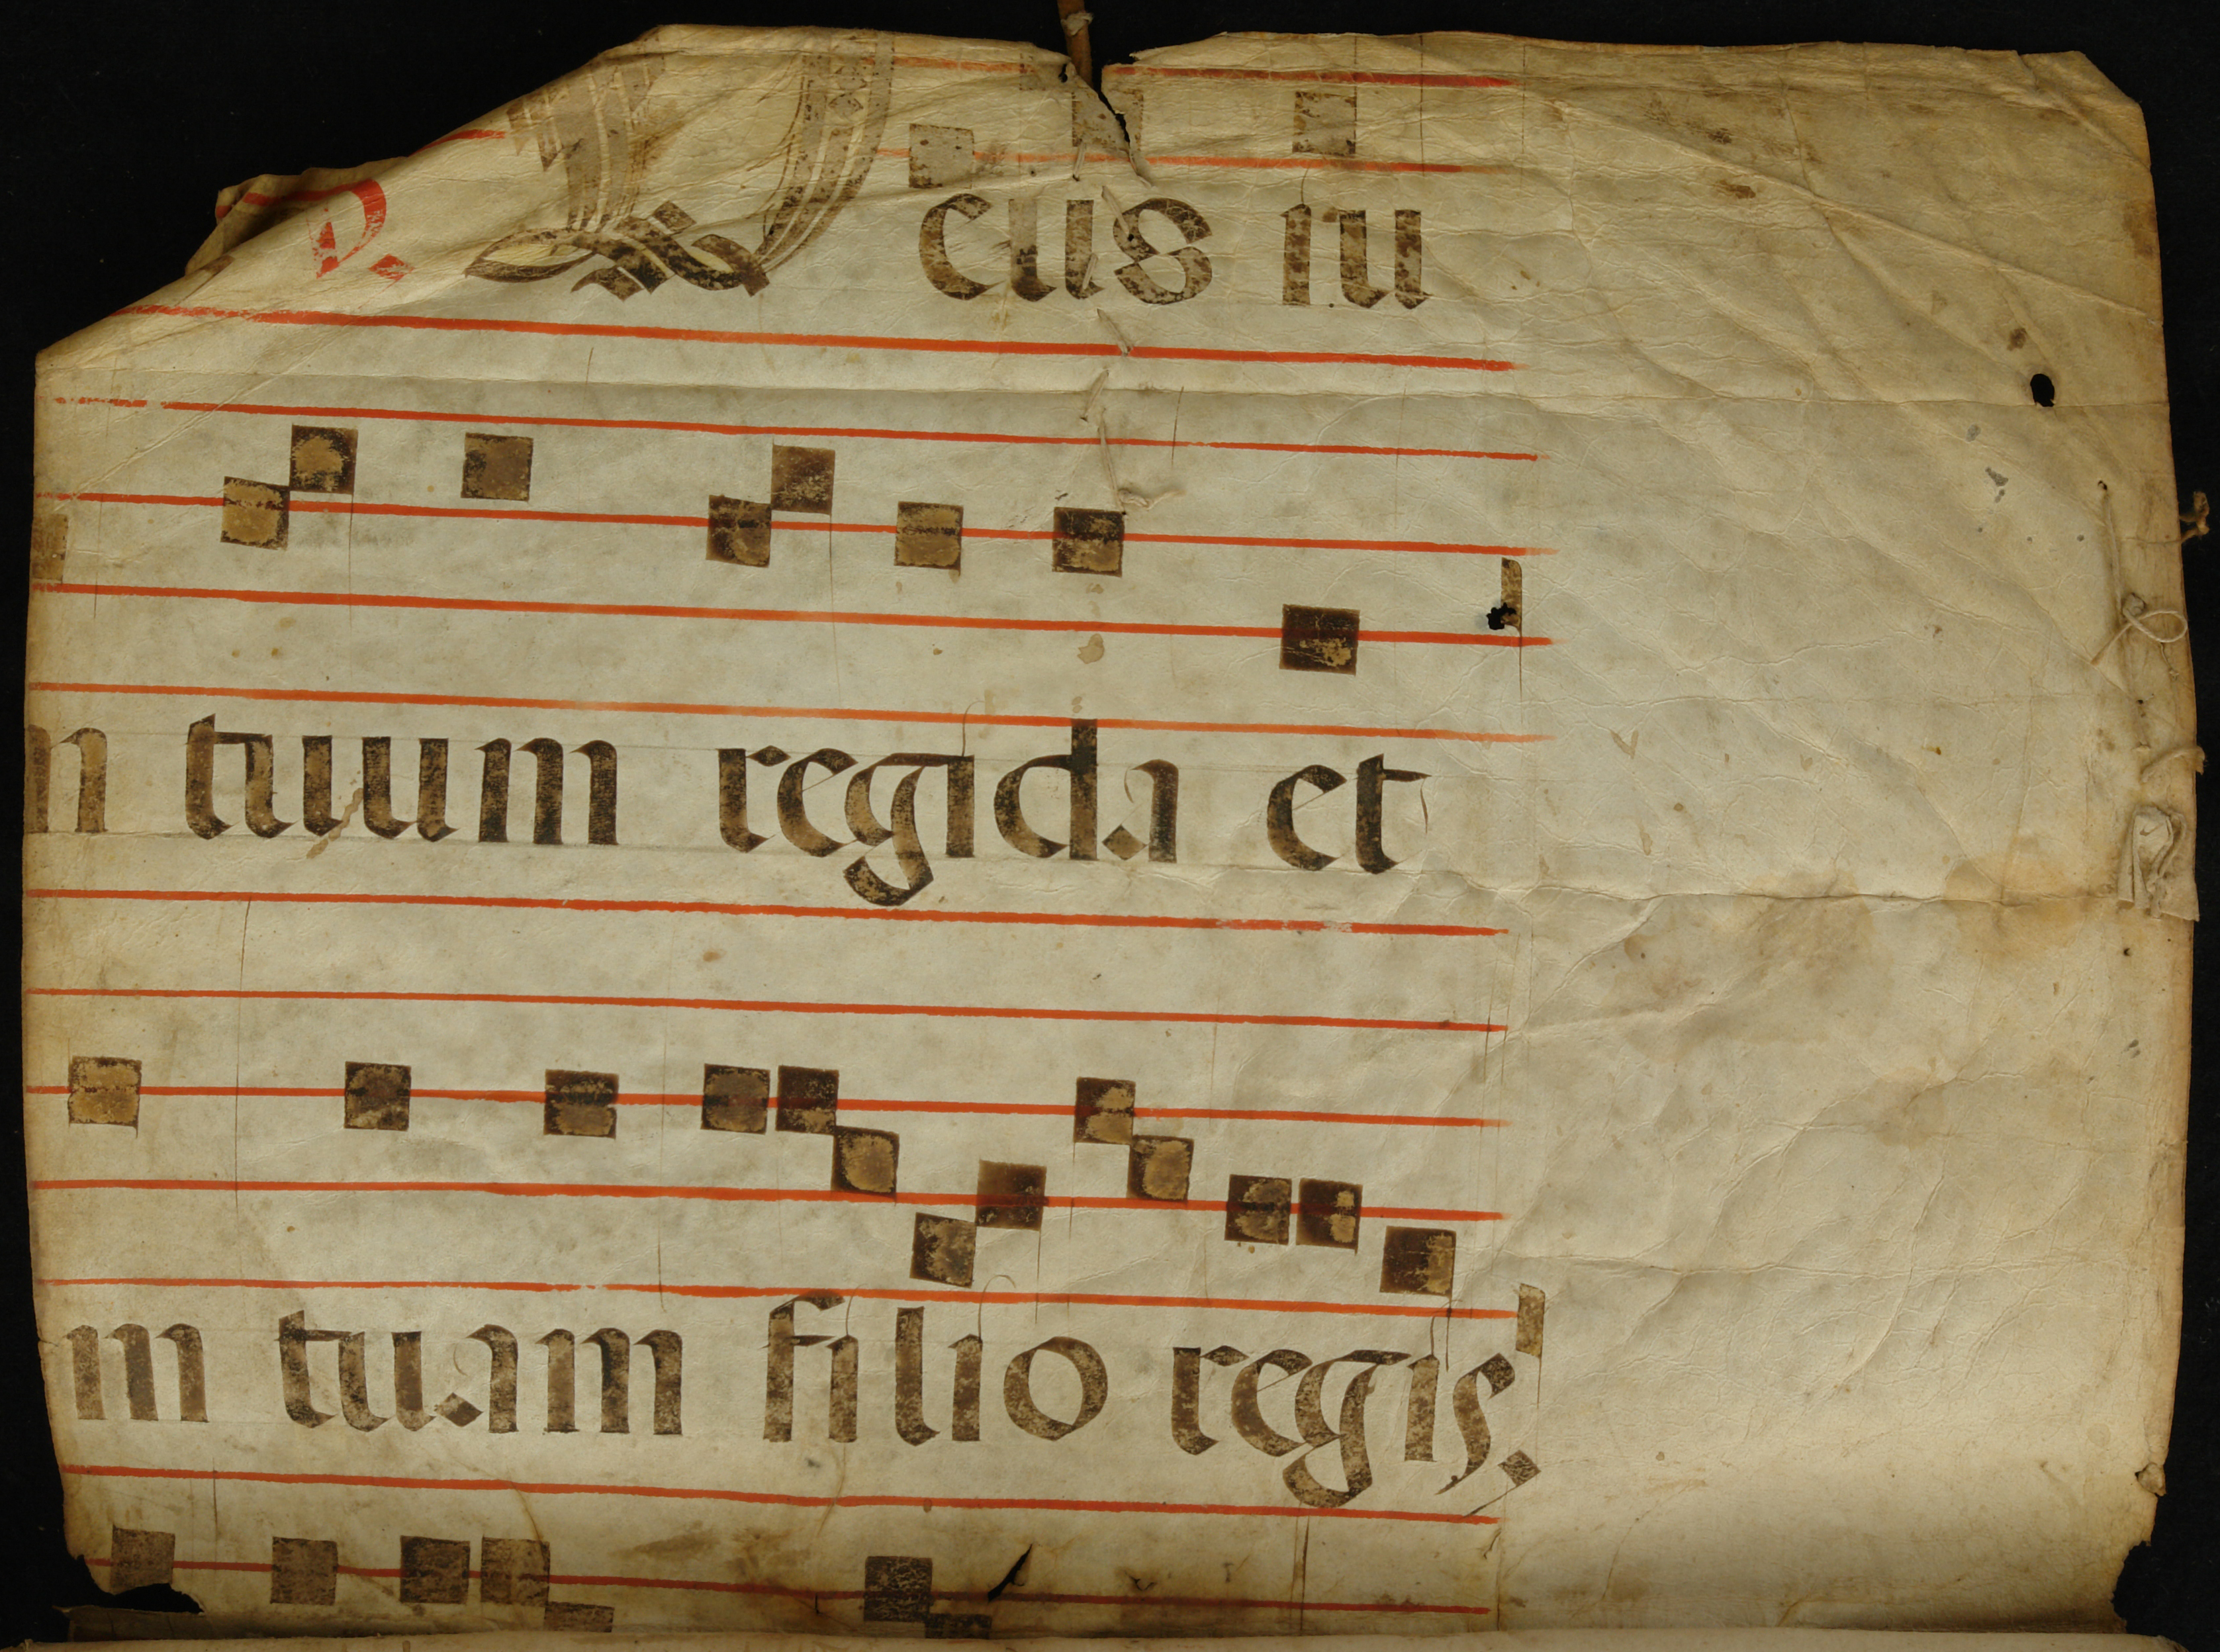 Deus iu
m tuum regida et
m tuam filio regis.